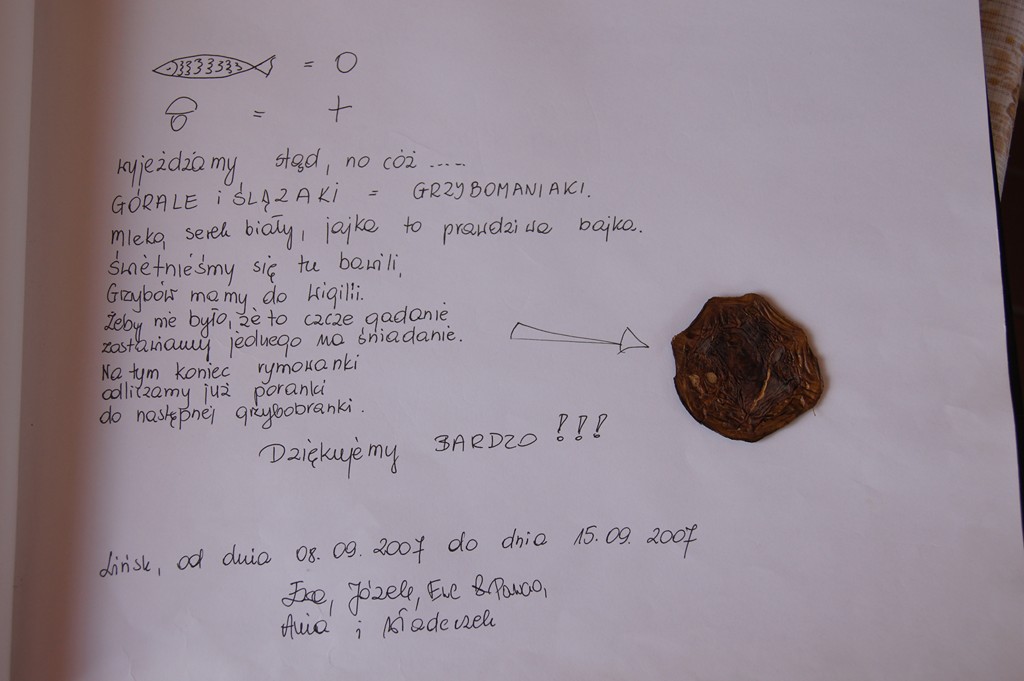 = 0
= +
wyjeżdżamy stąd, no cóż .....
GÓRALE i ŚLĄZAKI = GRZYBOMANIAKI.
Mleko, serek biały, jajka to prawdziwa bajka.
Świetnieśmy się tu bawili,
Grzybów mamy do Wigilii.
Żeby nie było, że to czcze gadanie
zostawiamy jednego na śniadanie.
Na tym koniec rymowanki
odliczamy już poranki
do następnej grzybobranki.
Dziękujemy BARDZO !!!
Lińsk, od dnia 08.09.2007 do dnia 15.09.2007
Józek,
Ania i Władeczek